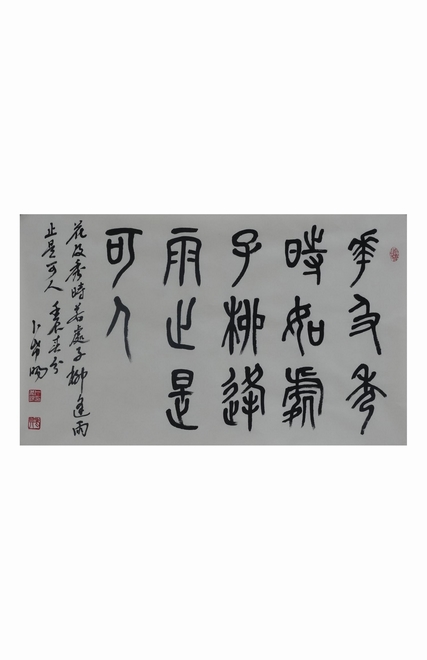 華及秀
時如處
子柳逢
雨止是
可人
花及秀時若處子柳逢雨
止是可人 春分
卜